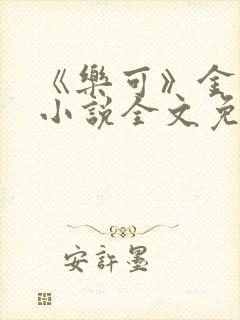 《樂可》金
小說全文免
安許墨